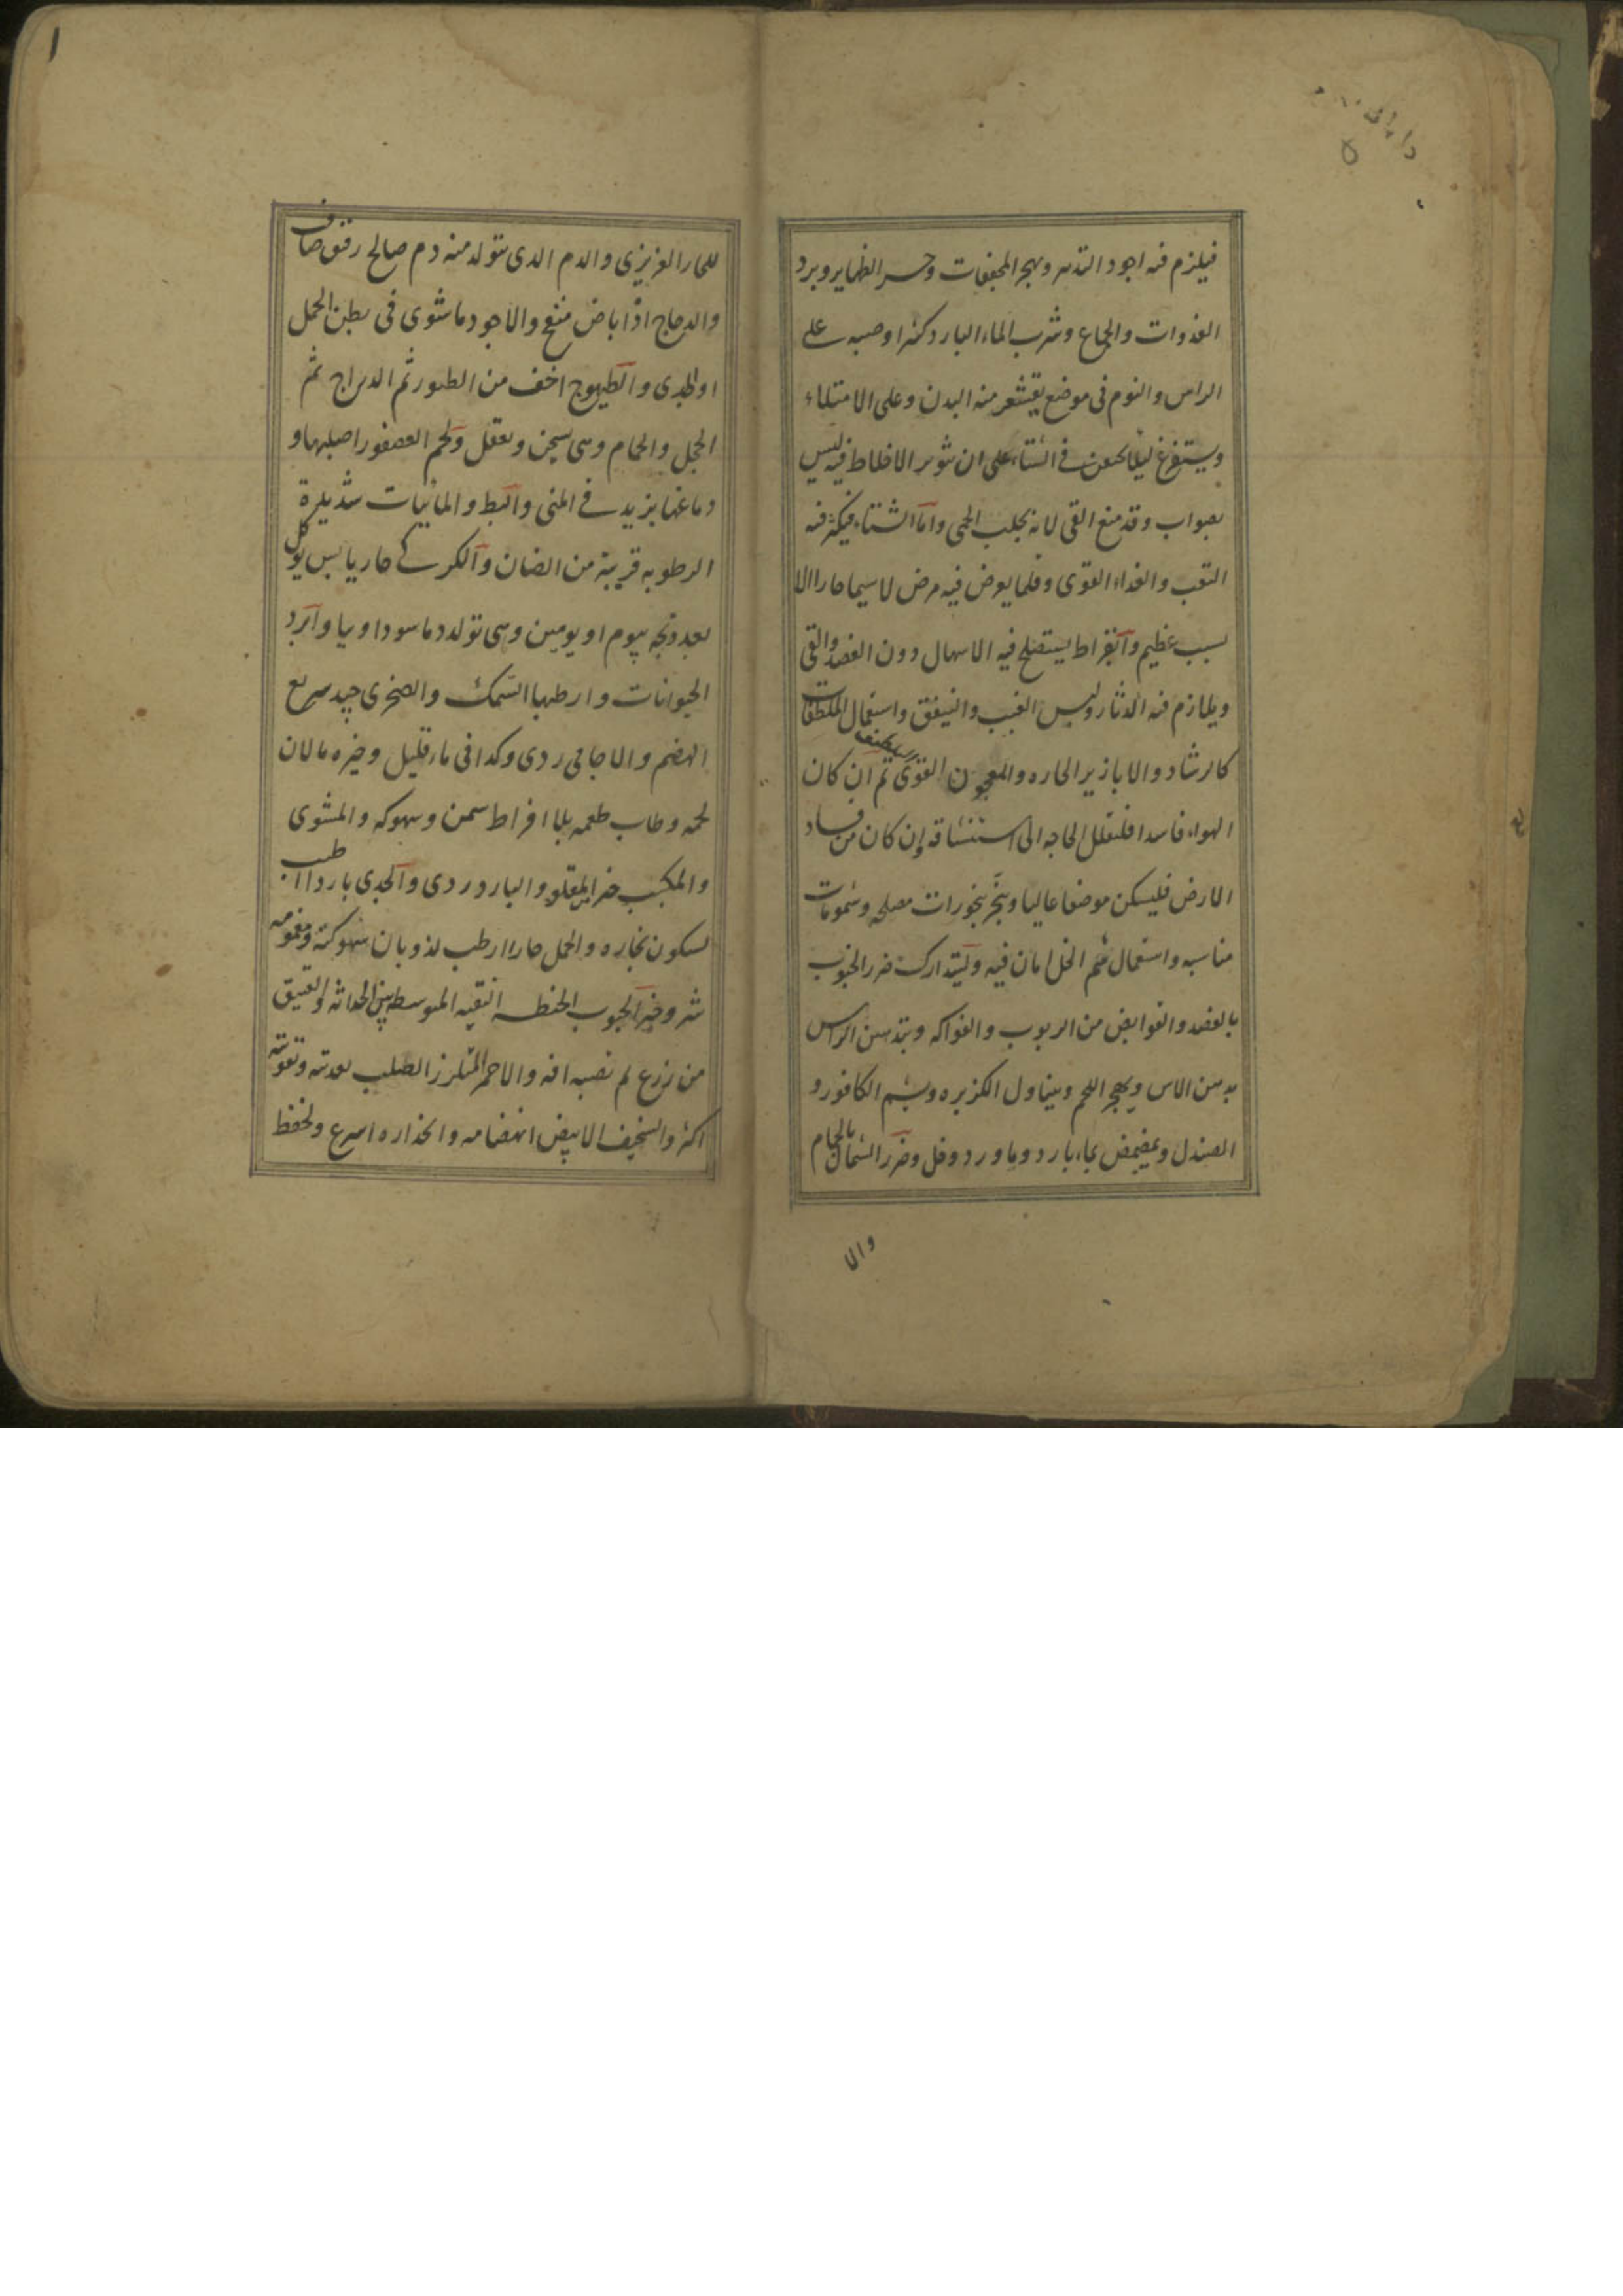 فيلزم فيه اجود التدبير ويهجر المجففات وحر الظهاير وبرد
الغدوات والجماع وشرب الماء البارد كثيرا وصبه على
الراس والنوم فى موضع يقشعر منه البدن وعلى الامتلاء
ويستفرغ ليلا فى الشتاء على ان الاخلاط فيه ليس
بصواب وقد منع القى لانه يجلب الحمى واما الشتاء فيكثر فيه
التعب والغذاء القوى وقلما يعرض فيه مرض لا سيما حارا الا
بسبب عظيم وابقراط يستصلح فيه الاسهال دون الفصد والقى
ويلازم فيه الدثار ولبس واستعمال الملطفات
كالرشاد والابازير الحاره والمعجون القوى ثم ان كان
الهواء فاسدا فليقلل الحاجه الى استنشاقه ان كان من فساد
الارض فليسكن موضعا عاليا ويبخر بخورات مصلحه وشمومات
مناسبه واستعمال شم الخل امان فيه ويستدارك ضرر الجنوب
بالفصد والقوابض من الربوب والفواكه وبتدهين الراس
بدهن الاس ويهجر اللحم ويتناول الكزبره ويشم الكافور و
الصندل ويمضمض بماء بارد وماورد وخل وضرر الشمال بالحمام
والا
للحار الغريزى والدم الدى يتولد منه دم صالح رقيق صاف
والدجاج اذا باض منع والاجود ما شوى فى بطن الحمل
او الجدى والطيهوج اخف من الطيور ثم الدراج ثم
الحجل والحمام وهى تسخن وتعقل ولحم العصفور اصلبها و
دماغها يزيد فى المنى والبط والمائيات شديدة
الرطوبه قريبة من الضان والكركى حار يابس يوكل
بعد ذبحه بيوم او يومين وهى تولد دما سوداويا وابرد
الحيوانات وارطبها السمك والصخرى جيد سريع
الهضم والاجامى ردى وكدا فى ماء قليل وخيره ما لان
لحمه وطاب طعمه بلا افراط سمن وسهوكه والمشوى
والمكبب خير من المقلو والبارد ردى والجدى بارد اطيب
لسكون بخاره والحمل حارا ارطب لذوبان سهوكته
شر وخير الحبوب الحنطه النقيه المتوسطه بين الحداثه والعتيق
من زرع لم تصبه افه والاحمر المتلزز الصلب وتقويته
اكثر والسخيف الابيض انهضامه وانحداره اسرع ولحفظ